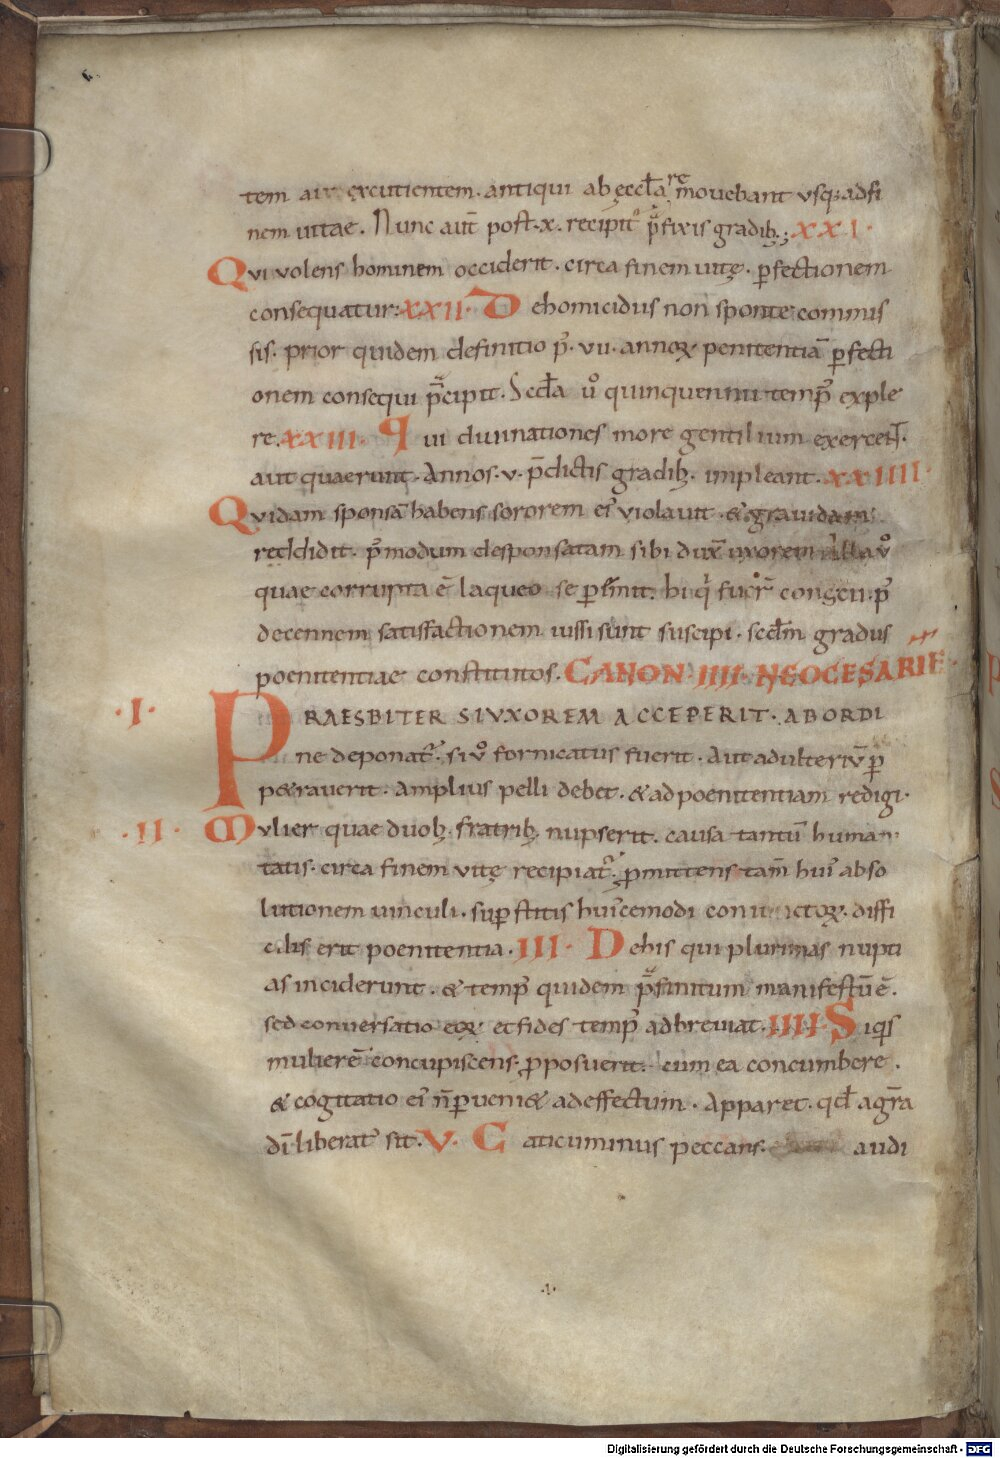 tem aut excutientem. antiqui ab ęccl̄a remouebant usq; adfi
nem uitae. Nunc aut̄ post .x. recipit᷑ p̄fixis gradib;; XXI.
Qui uolens hominem occiderit. circa finem uitę. ꝑfectionem
consequatur: XXII. De homicidus non sponte commis
sis. prior quidem definitio p᷑. VII. annoꝝ penitentiā ꝑfecti
onem consequi p̄cipit. Secd̄a u᷑o quinquennii temp᷑ exple
re. XXIII. Qui diuinationes more gentilium exercent.
aut quaerunt. Annos .v. p̄dictis gradib; impleant. XXIIII.
Quidam sponsā habens sororem ei᷑ uiolauit. & grauidam
reddidit. p᷑modum desponsatam sibi dux̄ uxorem illa u᷑o
quae corrupta ē laqueo se ꝑemit. hi q᷑ fuer̄ congeii. p᷑
decennem satisfactionem iussi sunt suscipi. secd̄m gradus
poenitentiae constitutos. CANON IIII. NEOCESARIĘ
.I. PRAESBITER SI UXOREM ACCEPERIT. AB ORDI
ne deponat᷑. si u᷑o fornicatus fuerit. Aut adulteriū ꝑ
p&rauerit. Amplius pelli debet. & ad poenitentiam redigi.
.II. Mulier quae duob; fratrib; nupserit. causa tantū humani
tatis. circa finem uitę recipiat᷑. ꝑmittens tam̄ hui᷑ abso
lutionem uinculi. suꝑstitis hui᷑cemodi coniunctoꝝ. diffi
cilis erit poenitentia. III. De his qui plurimas nupti
as inciderunt. & temp᷑ quidem p̄finitum manifestū ē.
sed conuersatio eoꝝ et fides temp᷑ adbreuiat. IIII. Siq᷑s
mulierē concupiscens. ꝓposuerit. cum ea concumbere.
& cogitatio ei᷑ n̄ ꝑueni& ad effectum. Apparet. qd̄ a gr̄a
dī liberat᷑ sit. V. Caticuminus peccans. audi
.1.
Digitalisierung gefördert durch die Deutsche Forschungsgemeinschaft - DFG